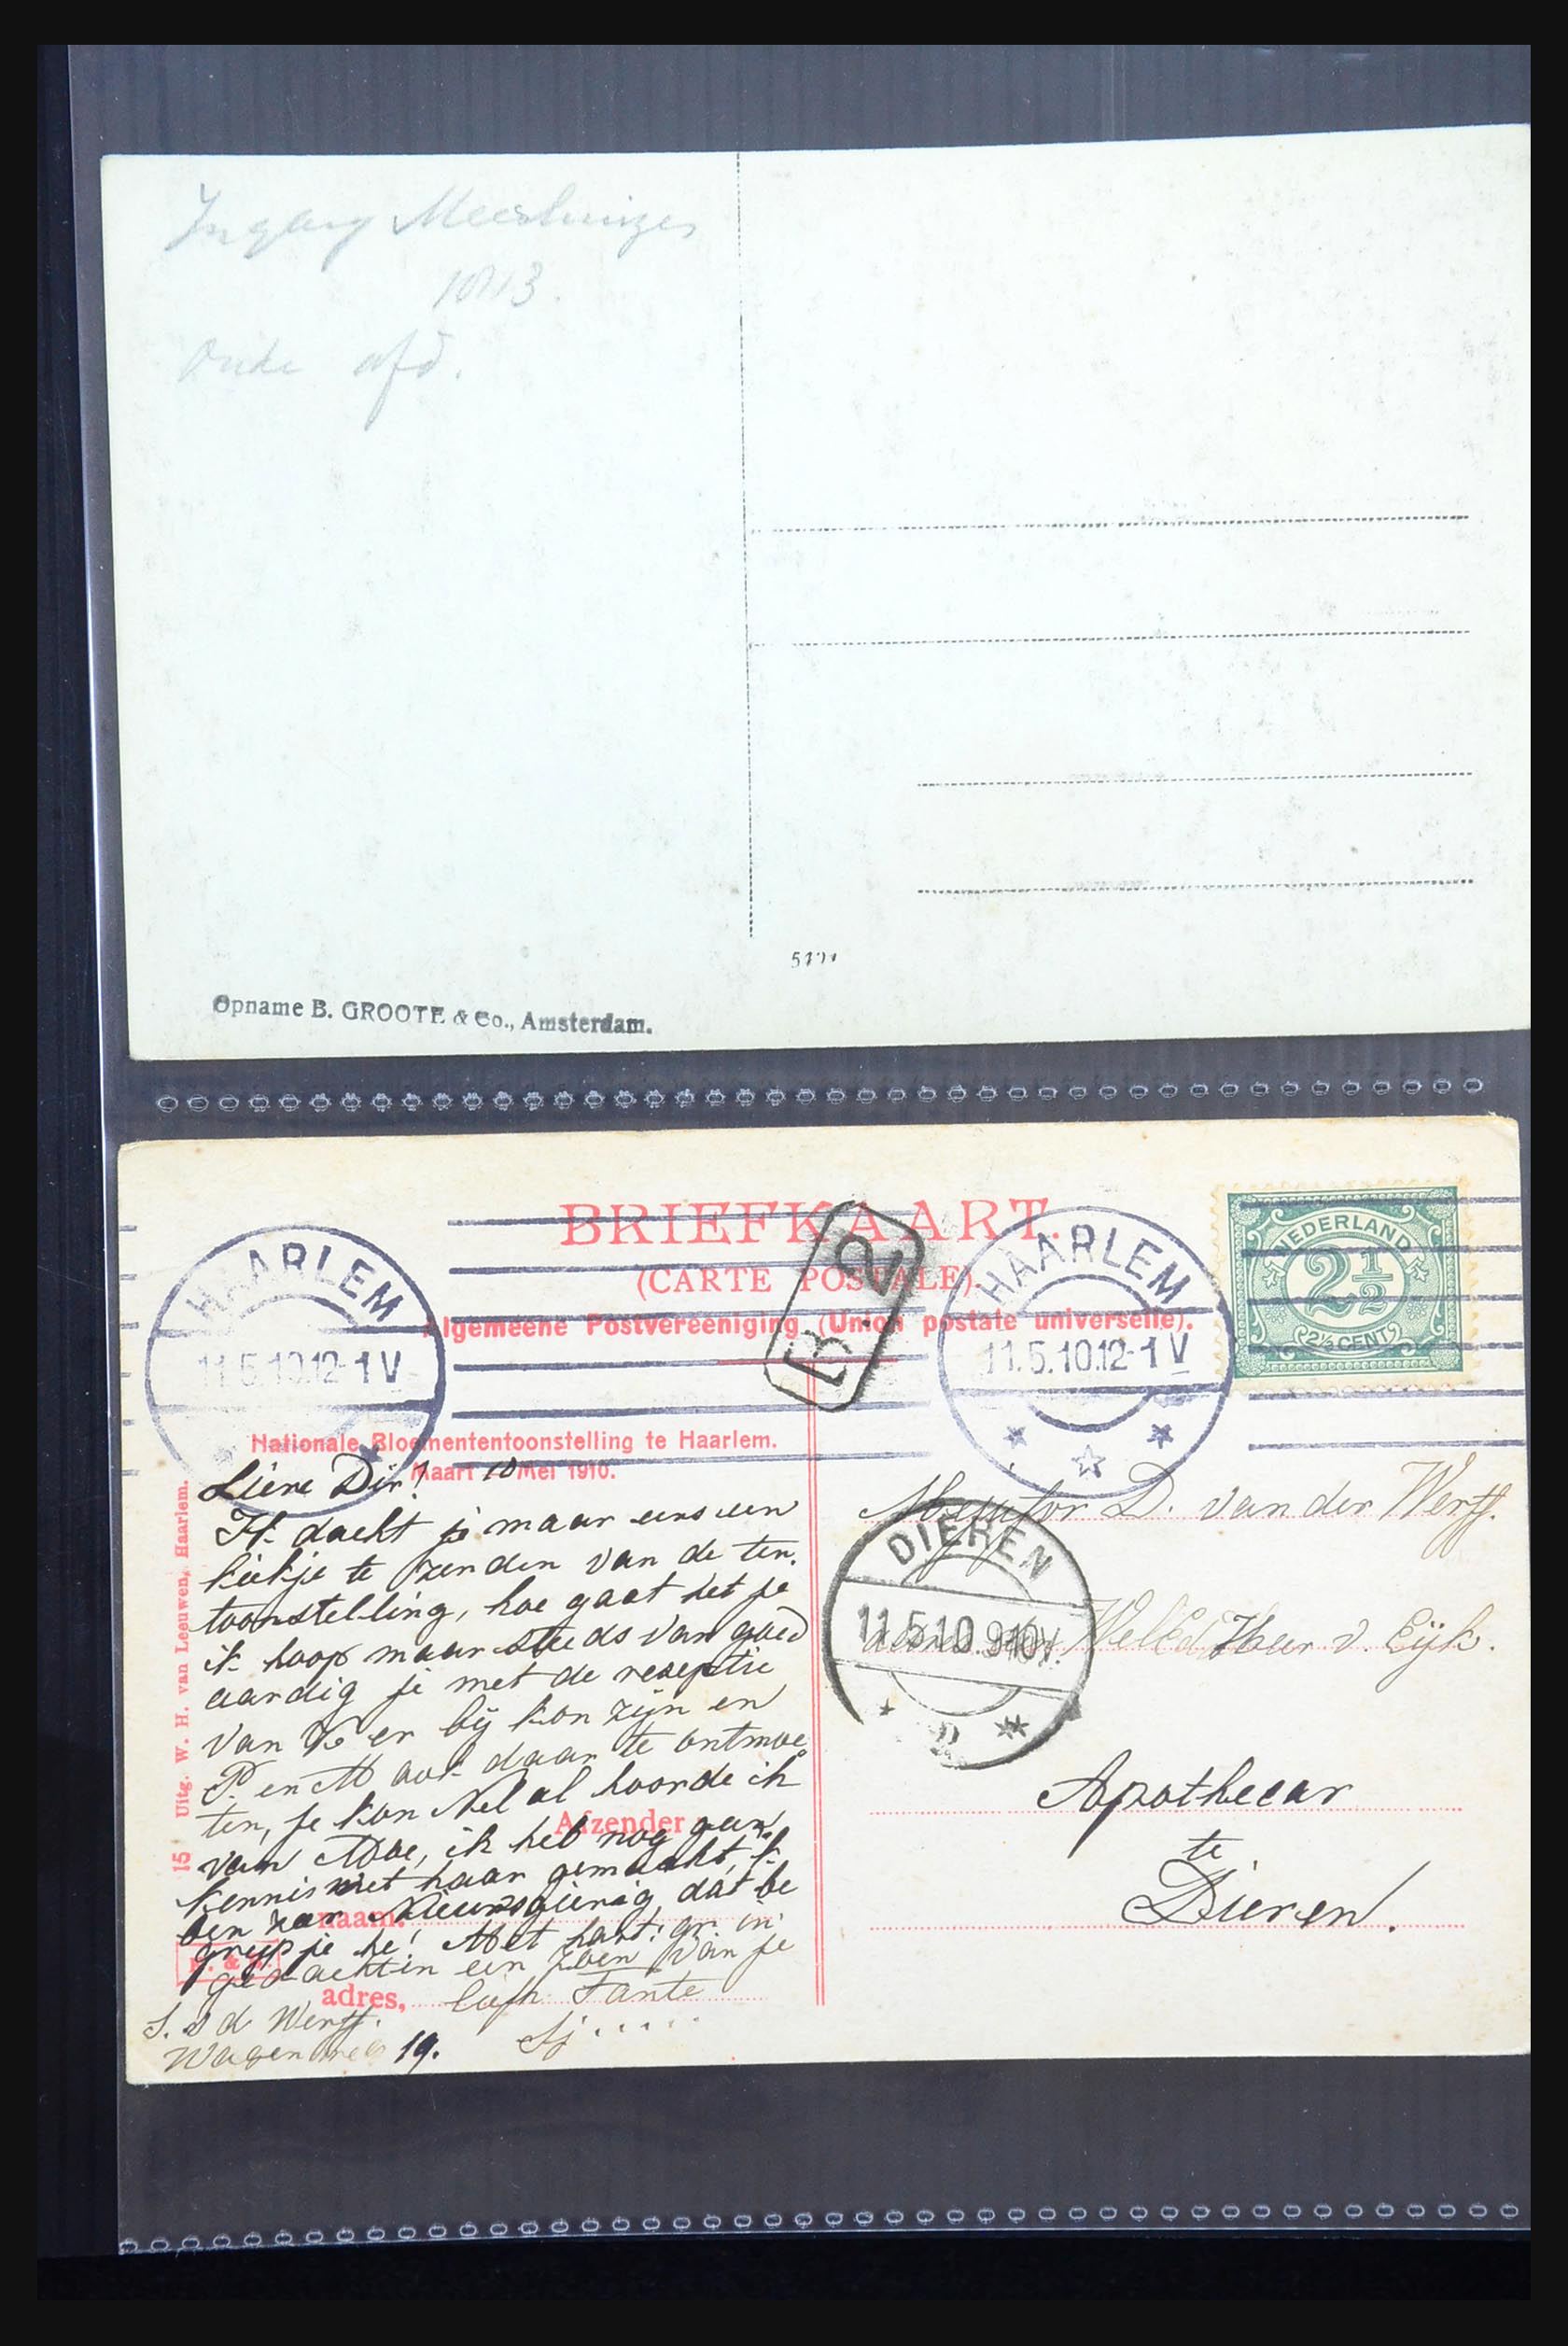 Ingang
Oude afd.
Opname B. GROOTE & Co., Amsterdam.
BRIEFKAART.
(CARTE POSTALE).
Algemeene Postvereeniging (Union postale universelle).
HAARLEM
11.5.10.12-1V
B.2
HAARLEM
11.5.10.12-1V
NEDERLAND
2½
2½ CENT
Nationale Bloemententoonstelling te Haarlem.
Maart 10 Mei 1910.
Uitg. W. H. van Leeuwen, Haarlem.
15
Lieve Dir!
Ik dacht je maar eens een
kiekje te zenden van de ten.
toonstelling, hoe gaat het je
ik hoop maar steeds van goed
aardig je met de receptie
van V er bij kon zijn en
P. en M ook daar te ontmoe
ten, je kon Nel al hoorde ik
van Moe, ik heb nog geen
kennis met haar gemaakt, ik
ben zeer Nieuwsgierig, dat be
grijp je he! Met hart: gr. in
gedachten een zoen van je
Tante
Sj.....
Afzender
naam,
adres,
S. v d Werff.
19.
D. van der Werff.
DIEREN
11.5.10.9-10V
WelEd Heer v. Eijk.
Apothecar
te
Dieren.